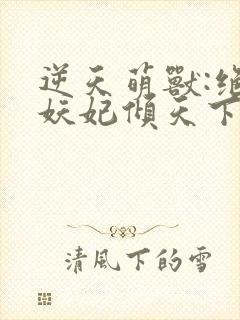 逆天萌獸:絕
妖妃傾天下
清風下的雪